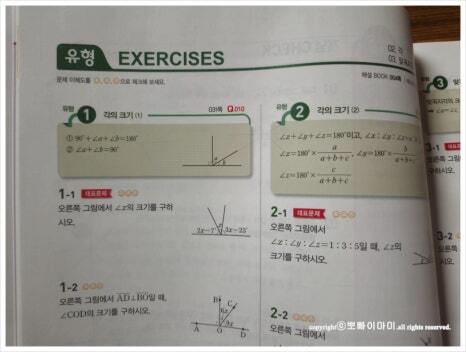 유형 EXERCISES
문제 이해도를 ○, ○, ○으로 체크해 보세요.
유형 1 각의 크기 (1) 031쪽 Q 010
① 90°+∠a+∠b=180°
② ∠a+∠b=90°
1-1 대표문제
오른쪽 그림에서 ∠x의 크기를 구하
시오.
1-2
오른쪽 그림에서 AD⊥BO일 때,
∠COD의 크기를 구하시오.
B
C
A O D
유형 2 각의 크기 (2)
∠x+∠y+∠z=180°이고,
∠x=180°× a/(a+b+c), ∠y=180°× b/(a+b+c)
∠z=180°× c/(a+b+c)
2-1 대표문제
오른쪽 그림에서
∠x : ∠y : ∠z=1 : 3 : 5일 때, ∠z의
크기를 구하시오.
2-2
오른쪽 그림에서
3
3-1
3-2
copyright ⓒ뽀빠이아미.all rights reserved.